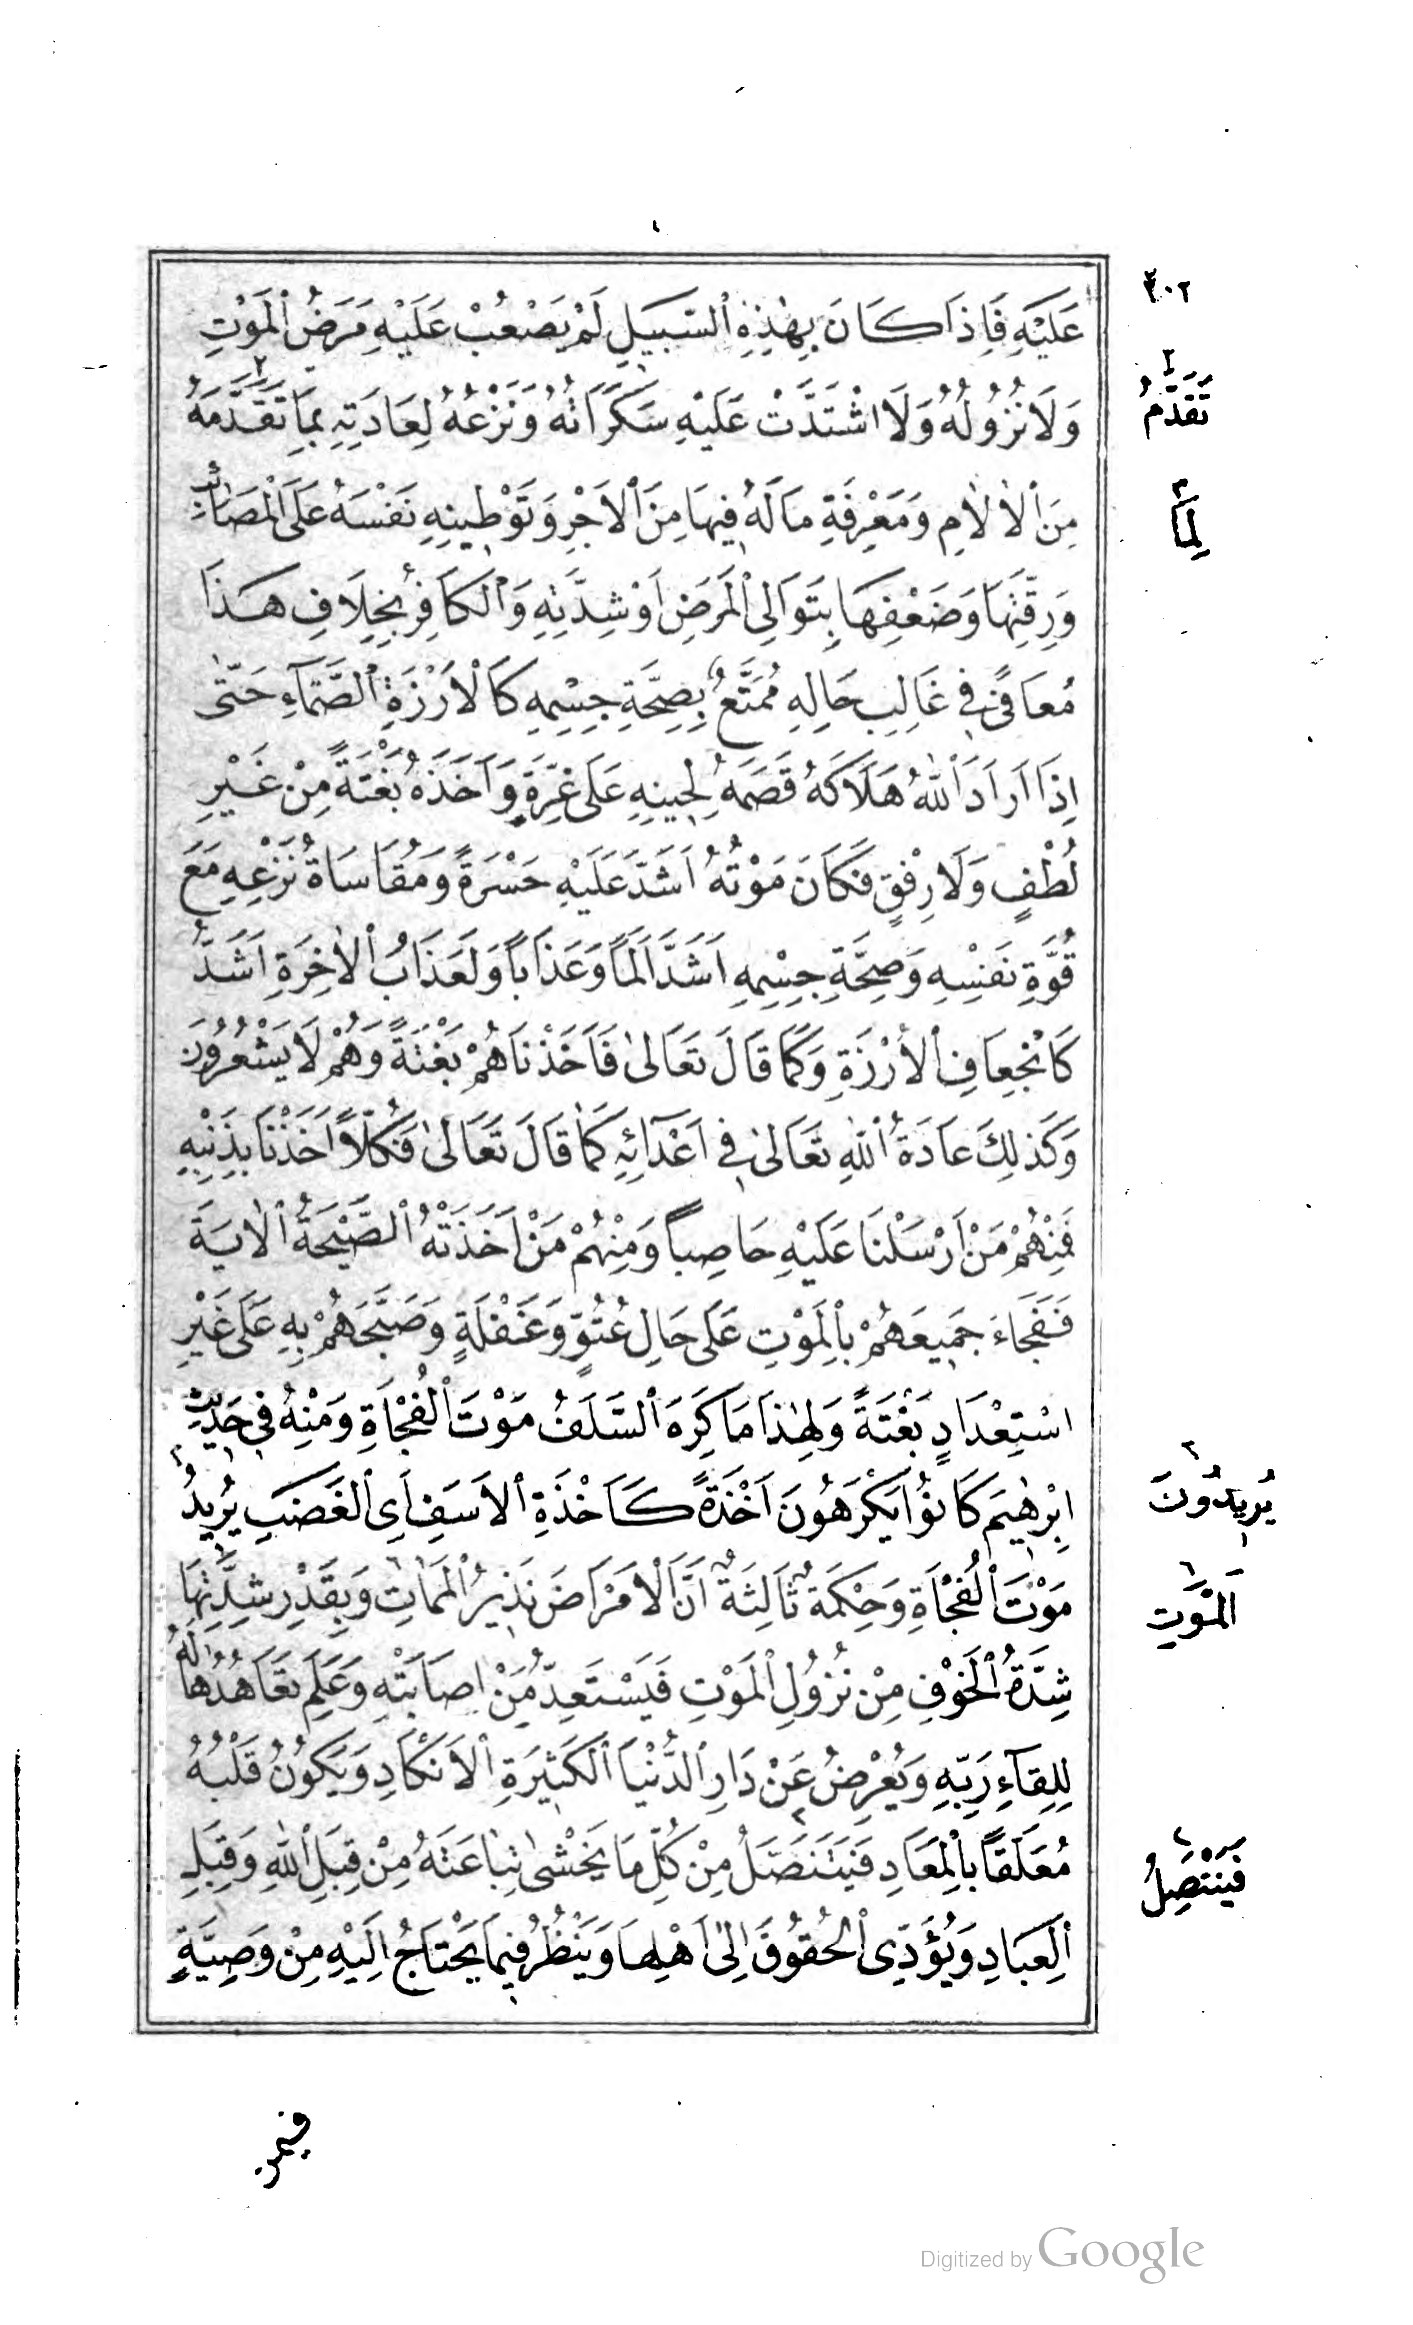 ٣٠٢
عَلَيْهِ فَاِذَا كَانَ بِهٰذِهِ ٱلسَّبِيلِ لَمْ يَصْعُبْ عَلَيْهِ مَرَضُ ٱلْمَوْتِ
وَلَا نُزُولُهُ وَلَا اشْتَدَّتْ عَلَيْهِ سَكَرَاتُهُ وَنَزْعُهُ لِعَادَتِهِ بِمَا تَقَدَّمَهُ
تَقَدَّمُ
مِنَ ٱلْاٰلَامِ وَمَعْرِفَةِ مَا لَهُ فِيهَا مِنَ ٱلْاَجْرِ وَتَوْطِينِهِ نَفْسَهُ عَلَى ٱلْمَصَائِبِ
لِمَا
وَرِقَّتِهَا وَضَعْفِهَا بِتَوَالِى ٱلْمَرَضِ اَوْ شِدَّتِهِ وَٱلْكَافِرُ بِخِلَافِ هٰذَا
مُعَافًى فِى غَالِبِ حَالِهِ مُمَتَّعٌ بِصِحَّةِ جِسْمِهِ كَالْاَرْزَةِ ٱلصَّمَّاءِ حَتّٰى
اِذَا اَرَادَ ٱللّٰهُ هَلَاكَهُ قَصَمَهُ لِحِينِهِ عَلَى غِرَّةٍ وَاَخَذَهُ بَغْتَةً مِنْ غَيْرِ
لُطْفٍ وَلَا رِفْقٍ فَكَانَ مَوْتُهُ اَشَدَّ عَلَيْهِ حَسْرَةً وَمُقَاسَاةُ نَزْعِهِ مَعَ
قُوَّةِ نَفْسِهِ وَصِحَّةِ جِسْمِهِ اَشَدَّ اَلَمًا وَعَذَابًا وَلَعَذَابُ ٱلْاٰخِرَةِ اَشَدُّ
كَانْجِعَافِ ٱلْاَرْزَةِ وَكَمَا قَالَ تَعَالٰى فَاَخَذْنَاهُمْ بَغْتَةً وَهُمْ لَا يَشْعُرُونَ
وَكَذٰلِكَ عَادَةُ ٱللّٰهِ تَعَالٰى فِى اَعْدَآئِهِ كَمَا قَالَ تَعَالٰى فَكُلًّا اَخَذْنَا بِذَنْبِهِ
فَمِنْهُمْ مَنْ اَرْسَلْنَا عَلَيْهِ حَاصِبًا وَمِنْهُمْ مَنْ اَخَذَتْهُ ٱلصَّيْحَةُ ٱلْاٰيَةَ
فَفَجَاءَ جَمِيعَهُمْ بِالْمَوْتِ عَلَى حَالِ عُتُوٍّ وَغَفْلَةٍ وَصَبَّحَهُمْ بِهِ عَلَى غَيْرِ
اسْتِعْدَادٍ بَغْتَةً وَلِهٰذَا مَا كَرِهَ ٱلسَّلَفُ مَوْتَ ٱلْفُجْاَةِ وَمِنْهُ فِى حَدِيثِ
اِبْرٰهِيمَ كَانُوا يَكْرَهُونَ اَخْذَةً كَاَخْذَةِ ٱلْاَسَفِ اَىِ ٱلْغَضَبِ يُرِيدُ
يُرِيدُونَ
مَوْتَ ٱلْفُجْاَةِ وَحِكْمَةٌ ثَالِثَةٌ اَنَّ ٱلْاَمْرَاضَ نَذِيرُ ٱلْمَمَاتِ وَبِقَدْرِ شِدَّتِهَا
اَلْمَوْتِ
شِدَّةُ ٱلْخَوْفِ مِنْ نُزُولِ ٱلْمَوْتِ فَيَسْتَعِدُّ مَنْ اصَابَتْهُ وَعَلِمَ تَعَاهُدَهَا لَهُ
لِلِقَآءِ رَبِّهِ وَيُعْرِضُ عَنْ دَارِ ٱلدُّنْيَا ٱلْكَثِيرَةِ ٱلْاَنْكَادِ وَيَكُونُ قَلْبُهُ
مُعَلَّقًا بِالْمَعَادِ فَيَتَنَصَّلُ مِنْ كُلِّ مَا يَخْشٰى تِبَاعَتَهُ مِنْ قِبَلِ ٱللّٰهِ وَقِبَلِ
فَيَنْتَصِلُ
ٱلْعِبَادِ وَيُؤَدِّى ٱلْحُقُوقَ اِلٰى اَهْلِهَا وَيَنْظُرُ فِيمَا يَحْتَاجُ اِلَيْهِ مِنْ وَصِيَّةٍ
فيمن
Digitized by Google